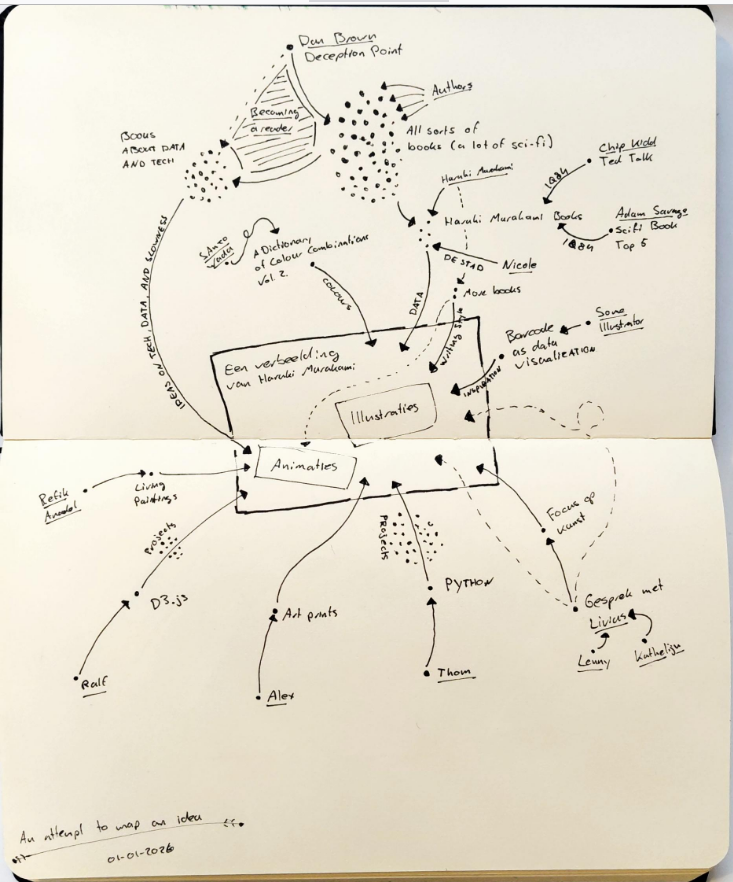 Dan Brown
Deception Point
Authors
Becoming
a reader
BOOKS
ABOUT DATA
AND TECH
All sorts of
books (a lot of sci-fi)
Haruki Murakami
Chip Kidd
Ted Talk
1Q84
Haruki Murakami Books
Adam Savage
Scifi Book
Top 5
1Q84
SANZO
WADA
A Dictionary
of Colour Combinations
Vol. 2.
DE STAD
Nicole
More books
IDEAS ON TECH, DATA, AND SLOWNESS
COLOURS
DATA
Writing style
Some
Illustrator
Barcode
as data
visualization
INSPIRATION
Een verbeelding
van Haruki Murakami
Illustraties
Animaties
Refik
Anadol
Living
Paintings
Projects
PROJECTS
Focus op
kunst
D3.js
Art prints
PYTHON
Gesprek met
Livius
Lenny
Kathelijn
Ralf
Alex
Thom
An attempt to map an idea
01-01-2026